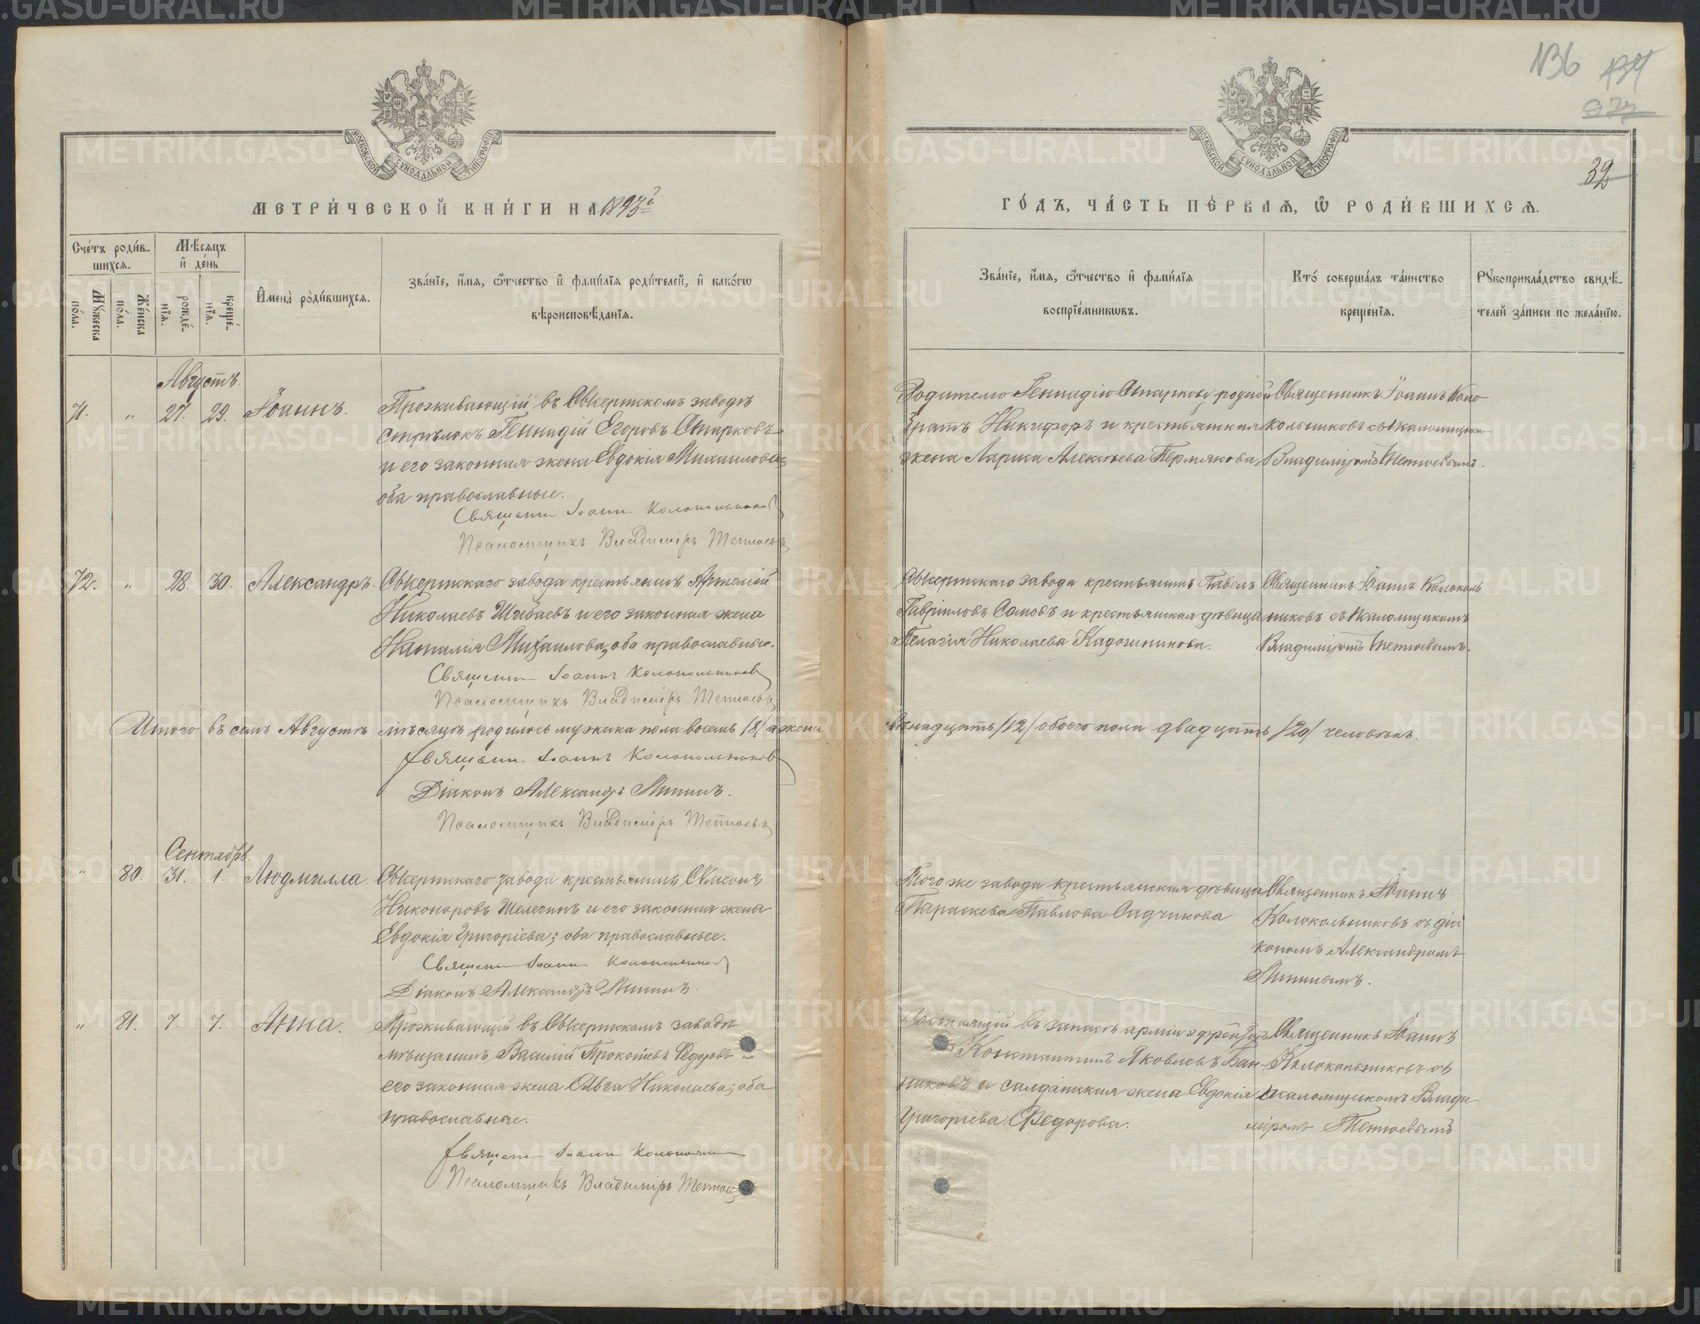 136
134
277
32
МЕТРИ́ЧЕСКОЙ КНИ́ГИ НА 1893й
ГО́ДЪ, ЧА́СТЬ ПЕ́РВАЯ, Ѿ РОДИ́ВШИХСЯ.
Сче́тъ роди́вшихся.
Му́жеска по́ла.
Же́нска по́ла.
Мѣ́сяцъ и̂ де́нь
рожде́нїя.
креще́нїя.
И̂мена̀ роди́вшихся.
Зва́нїе, и̂́мя, ѻ́тчество и̂ фами́лїя роди́телей, и̂ како́гѡ
вѣроисповѣ́данїя.
Зва́нїе, и̂́мя, ѻ́тчество и̂ фами́лїя
воспрїе́мникѡвъ.
Кто́ соверша́лъ та́инство
креще́нїя.
Рꙋкоприкла́дство свидѣ́-
телей за́писи по жела́нїю.
Августъ.
71. " 27. 29. Іоаннъ.
Проживающій въ заводѣ
Геннадій Егоровъ
и его законная жена Евдокія Михаилова
оба православные.
Священ Іоаннъ Колокольников
Псаломщикъ Владиміръ Тетюевъ
Родителю Геннадію родной
братъ Никифоръ и крестьянская
жена Лариса Алексѣева Пермякова
Священникъ Іоаннъ Коло-
кольниковъ съ псаломщикомъ
Владиміромъ Тетюевымъ.
72. " 28. 30. Александръ.
завода крестьянинъ Артемій
Николаевъ и его законная жена
Наталія Михаилова, оба православные.
Священ Іоаннъ Колокольников
Псаломщикъ Владиміръ Тетюевъ
завода крестьянинъ Павелъ
Гавріиловъ и крестьянская дѣвица
Пелагія Николаева Кадошникова.
Священникъ Іоаннъ Колоколь
никовъ съ псаломщикомъ
Владиміромъ Тетюевымъ.
Итого въ семъ Августѣ мѣсяцѣ родилось мужеска пола восемь /8/ а жен
двѣнадцать /12/ обоего пола двадцать /20/ человѣкъ.
Священ. Іоаннъ Колокольников
Діаконъ Александръ Мининъ.
Псаломщикъ Владиміръ Тетюевъ
Сентябрь.
" 80. 31. 1. Людмилла
завода крестьянинъ
Никоноровъ и его законная жена
Евдокія Григоріева; оба православные.
Священ Іоаннъ Колокольников
Діаконъ Александръ Мининъ.
Того же завода крестьянская дѣвица
Параскева Павлова Садчикова
Священникъ Іоаннъ
Колокольниковъ съ діа
кономъ Александромъ
Мининымъ.
" 81. 7. 7. Анна.
Проживающій въ заводѣ
мѣщанинъ Василій Прокопіевъ Ѳедоровъ
его законная жена Ольга Николаева; оба
православные.
Священ Іоаннъ Колокольник
Псаломщикъ Владиміръ Тетюевъ
Состоящій въ запасѣ арміи
Константинъ Яковлевъ Бан-
никовъ и салдатская жена Евдокія
Григоріева Ѳедорова.
Священникъ Іоаннъ
Колокольниковъ съ
псаломщикомъ Влади
міромъ Тетюевымъ
METRIKI.GASO-URAL.RU